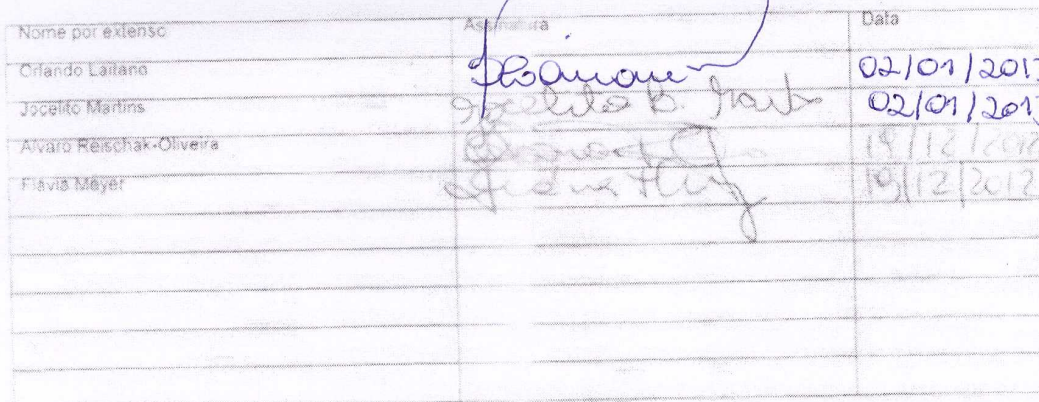 Nome por extenso Assinatura Data
Orlando Laitano 02/01/201
Jocelito Martins Jocelito B. Martins 02/01/201
Alvaro Reischak-Oliveira 19/12/2012
Flávia Meyer 19/12/2012